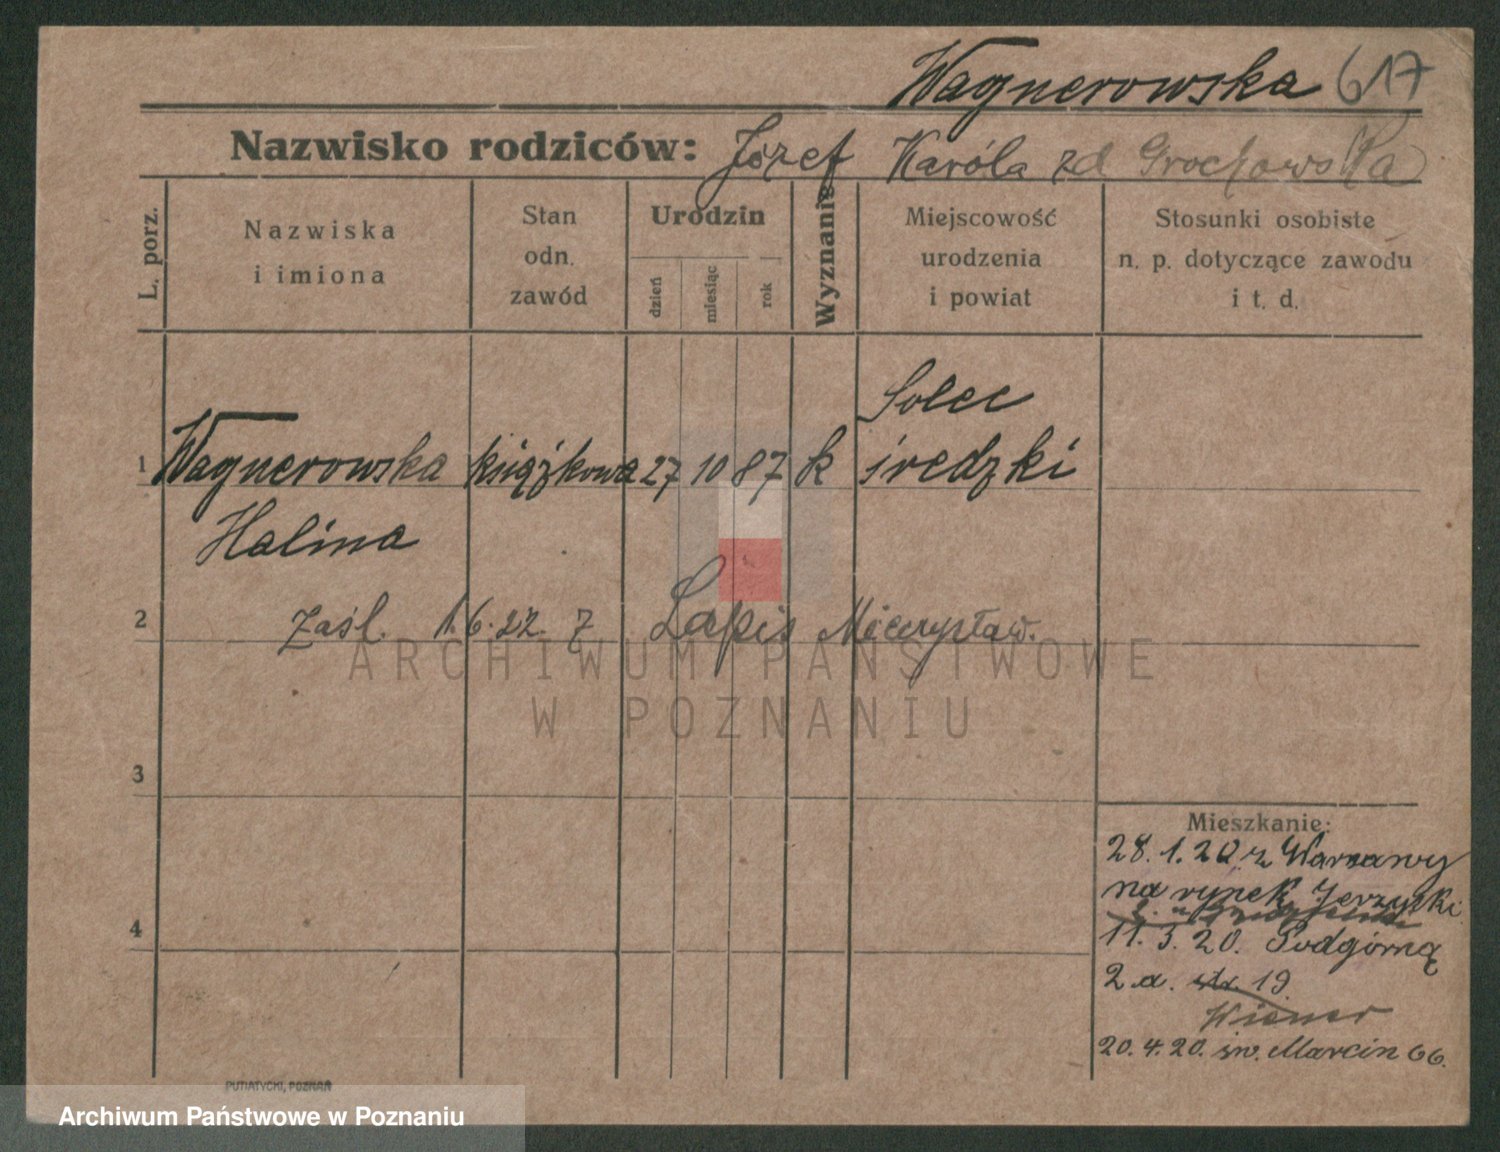 Wagnerowska 617
Nazwisko rodziców: Józef Karóla zd Grochowska
L. porz.
Nazwiska
i imiona
Stan
odn.
zawód
Urodzin
dzień
miesiąc
rok
Wyznanie
Miejscowość
urodzenia
i powiat
Stosunki osobiste
n. p. dotyczące zawodu
i t. d.
Solec
1 Wagnerowska książkowa 27 10 87 k średzki
Halina
2 Zaśl. 1.6.22. z Lapis Mieczysław.
ARCHIWUM PAŃSTWOWE
W POZNANIU
3
Mieszkanie:
28.1.20 z Warszawy
na rynek Jerzycki
4
11.3.20. Podgórną
2 a. str. 19.
Wiener
20.4.20. św. Marcin 66.
PUTIATYCKI, POZNAŃ
Archiwum Państwowe w Poznaniu